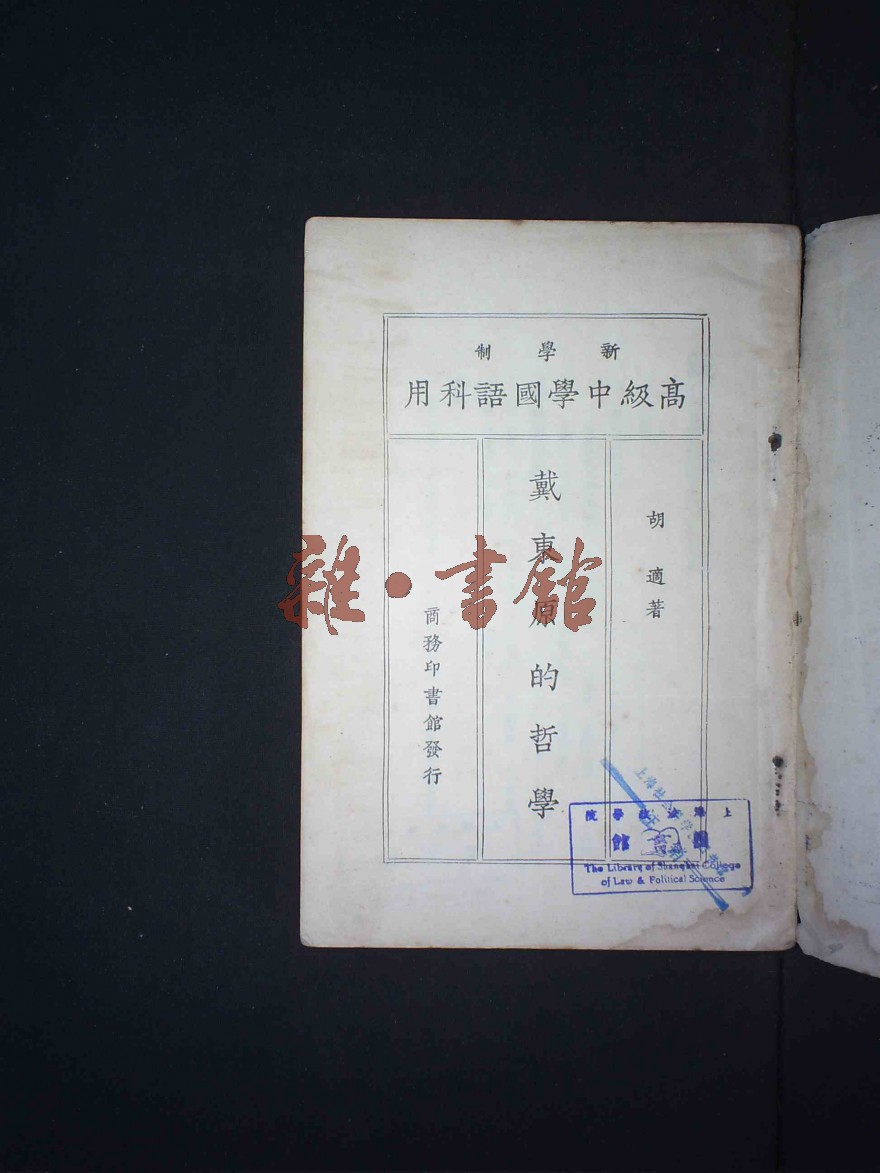 新學制
高級中學國語科用
胡適著
戴東原的哲學
商務印書館發行
雜·書館
上海法政學院
圖書館
The Library of Shanghai College
of Law & Political Science